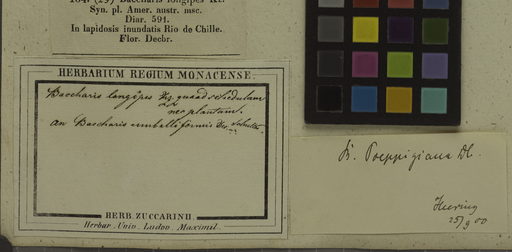 104. (29) Baccharis longipes Kz.
Syn. pl. Amer. austr. msc.
Diar. 591.
In lapidosis inundatis Rio de Chille.
Flor. Decbr.
HERBARIUM REGIUM MONACENSE.
Baccharis longipes Kz. quoad schedulam
nec plantam.
an Baccharis umbelliformis DC.
HERB. ZUCCARINII.
Herbar. Univ. Ludov. Maximil.
B. Poeppigiana DC.
Heering
25/9 00